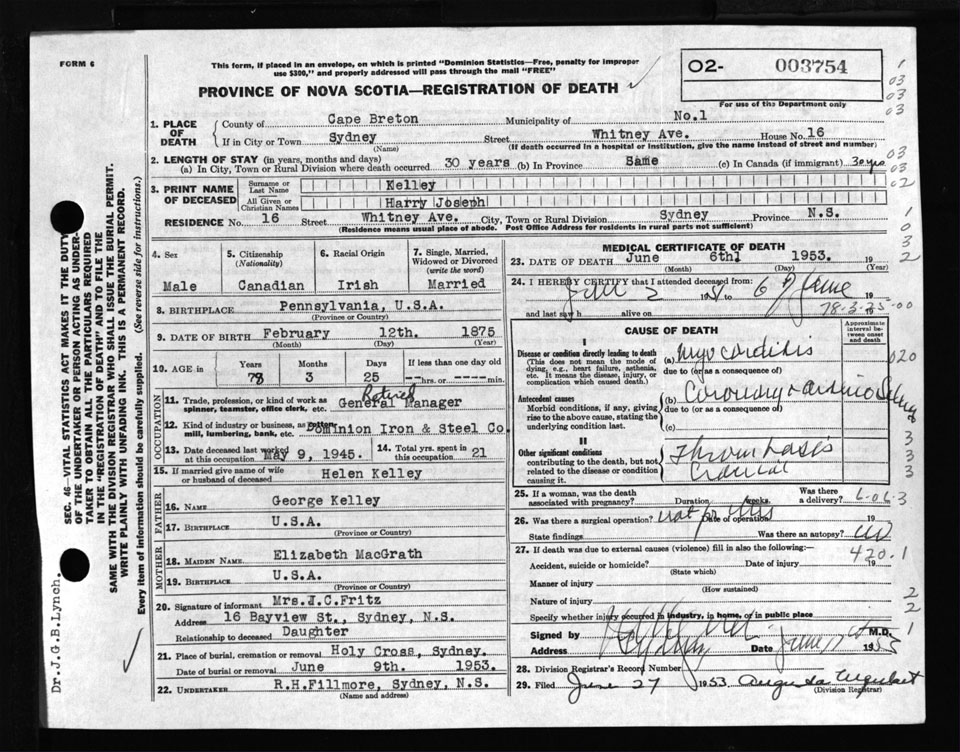 FORM 6
This form, if placed in an envelope, on which is printed "Dominion Statistics—Free, penalty for improper
use $300," and properly addressed will pass through the mail "FREE"
PROVINCE OF NOVA SCOTIA—REGISTRATION OF DEATH
O2- 003754
For use of the Department only
1. PLACE OF DEATH
County of Cape Breton Municipality of No.1
If in City or Town Sydney Street Whitney Ave. House No. 16
(Name) (If death occurred in a hospital or institution, give the name instead of street and number)
2. LENGTH OF STAY (in years, months and days)
(a) In City, Town or Rural Division where death occurred 30 years (b) In Province Same (c) In Canada (if immigrant) 30 yrs
3. PRINT NAME OF DECEASED
Surname or Last Name Kelley
All Given or Christian Names Harry Joseph
RESIDENCE No. 16 Street Whitney Ave. City, Town or Rural Division Sydney Province N.S.
(Residence means usual place of abode. Post Office Address for residents in rural parts not sufficient)
4. Sex Male
5. Citizenship (Nationality) Canadian
6. Racial Origin Irish
7. Single, Married, Widowed or Divorced (write the word) Married
8. BIRTHPLACE Pennsylvania, U.S.A.
(Province or Country)
9. DATE OF BIRTH February 12th. 1875
(Month) (Day) (Year)
10. AGE in Years 78 Months 3 Days 25 If less than one day ---hrs. or ----min.
OCCUPATION
11. Trade, profession, or kind of work as spinner, teamster, office clerk, etc. Retired General Manager
12. Kind of industry or business, as cotton mill, lumbering, bank, etc. Dominion Iron & Steel Co
13. Date deceased last worked at this occupation May 9, 1945.
14. Total yrs. spent in this occupation 21
15. If married give name of wife or husband of deceased Helen Kelley
FATHER
16. NAME George Kelley
17. BIRTHPLACE U.S.A.
(Province or Country)
MOTHER
18. MAIDEN NAME Elizabeth MacGrath
19. BIRTHPLACE U.S.A.
(Province or Country)
20. Signature of informant Mrs.J.C.Fritz
Address 16 Bayview St., Sydney, N.S.
Relationship to deceased Daughter
21. Place of burial, cremation or removal Holy Cross, Sydney.
Date of burial or removal June 9th. 1953.
22. UNDERTAKER R.H.Fillmore, Sydney, N.S.
(Name and address)
MEDICAL CERTIFICATE OF DEATH
23. DATE OF DEATH June 6th 1953. 19
(Month) (Day) (Year)
24. I HEREBY CERTIFY that I attended deceased from:
to 6 June
and last saw h alive on 19
78-3-25-00
CAUSE OF DEATH
Approximate interval between onset and death
I
Disease or condition directly leading to death
(This does not mean the mode of dying, e.g., heart failure, asthenia, etc. It means the disease, injury, or complication which caused death.)
(a) Myocarditis
due to (or as a consequence of)
Antecedent causes
Morbid conditions, if any, giving rise to the above cause, stating the underlying condition last.
(b) Coronary
due to (or as a consequence of)
(c)
II
Other significant conditions
contributing to the death, but not related to the disease or condition causing it.
Thrombosis
25. If a woman, was the death associated with pregnancy? Duration weeks. Was there a delivery?
26. Was there a surgical operation? Date of operation 19
State findings Was there an autopsy?
27. If death was due to external causes (violence) fill in also the following:—
420.1
Accident, suicide or homicide? Date of injury 19
(State which)
Manner of injury
(How sustained)
Nature of injury
Specify whether injury occurred in industry, in home, or in public place
Signed by M.D.
Address Date June 19
28. Division Registrar's Record Number
29. Filed June 27 1953
(Division Registrar)
SEC. 46—VITAL STATISTICS ACT MAKES IT THE DUTY
OF THE UNDERTAKER OR PERSON ACTING AS UNDER-
TAKER TO OBTAIN ALL THE PARTICULARS REQUIRED
IN THE "REGISTRATION OF DEATH" AND TO FILE THE
SAME WITH THE DIVISION REGISTRAR WHO SHALL ISSUE THE BURIAL PERMIT.
WRITE PLAINLY WITH UNFADING INK. THIS IS A PERMANENT RECORD.
Every item of information should be carefully supplied. (See reverse side for instructions.)
Dr.J.G.B.Lynch.